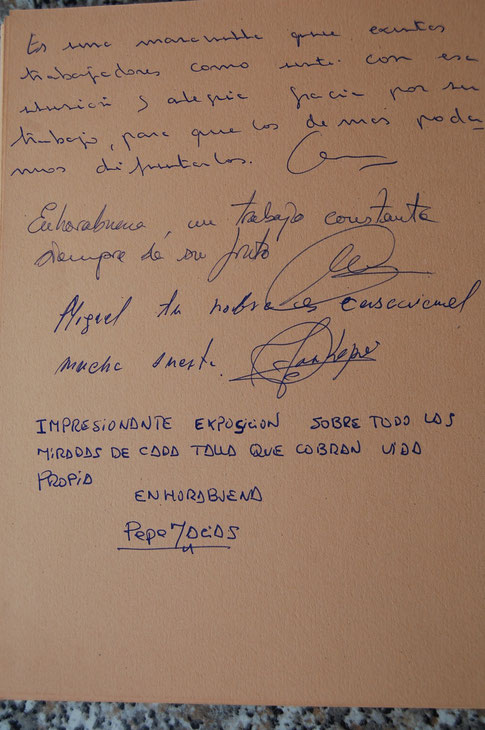 Es una maravilla que existas
trabajadores como uste. con esa
ilusición y alegria gracia por su
trabajo, para que los demas poda-
mos disfrutarlos.
Enhorabuena, un trabajo constante
siempre da su fruto
Miguel tu hobra es
mucha suerte.
IMPRESIONANTE EXPOSICION SOBRE TODO LAS
MIRADAS DE CADA TALLA QUE COBRAN VIDA
PROPIA
ENHORABUENA
Pepe